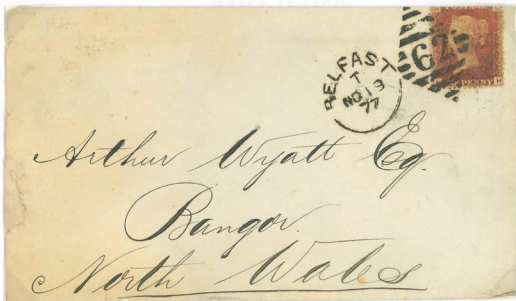 BELFAST
T
NO 19
77
62
PENNY
Arthur Wyatt Esq.
Bangor.
North Wales